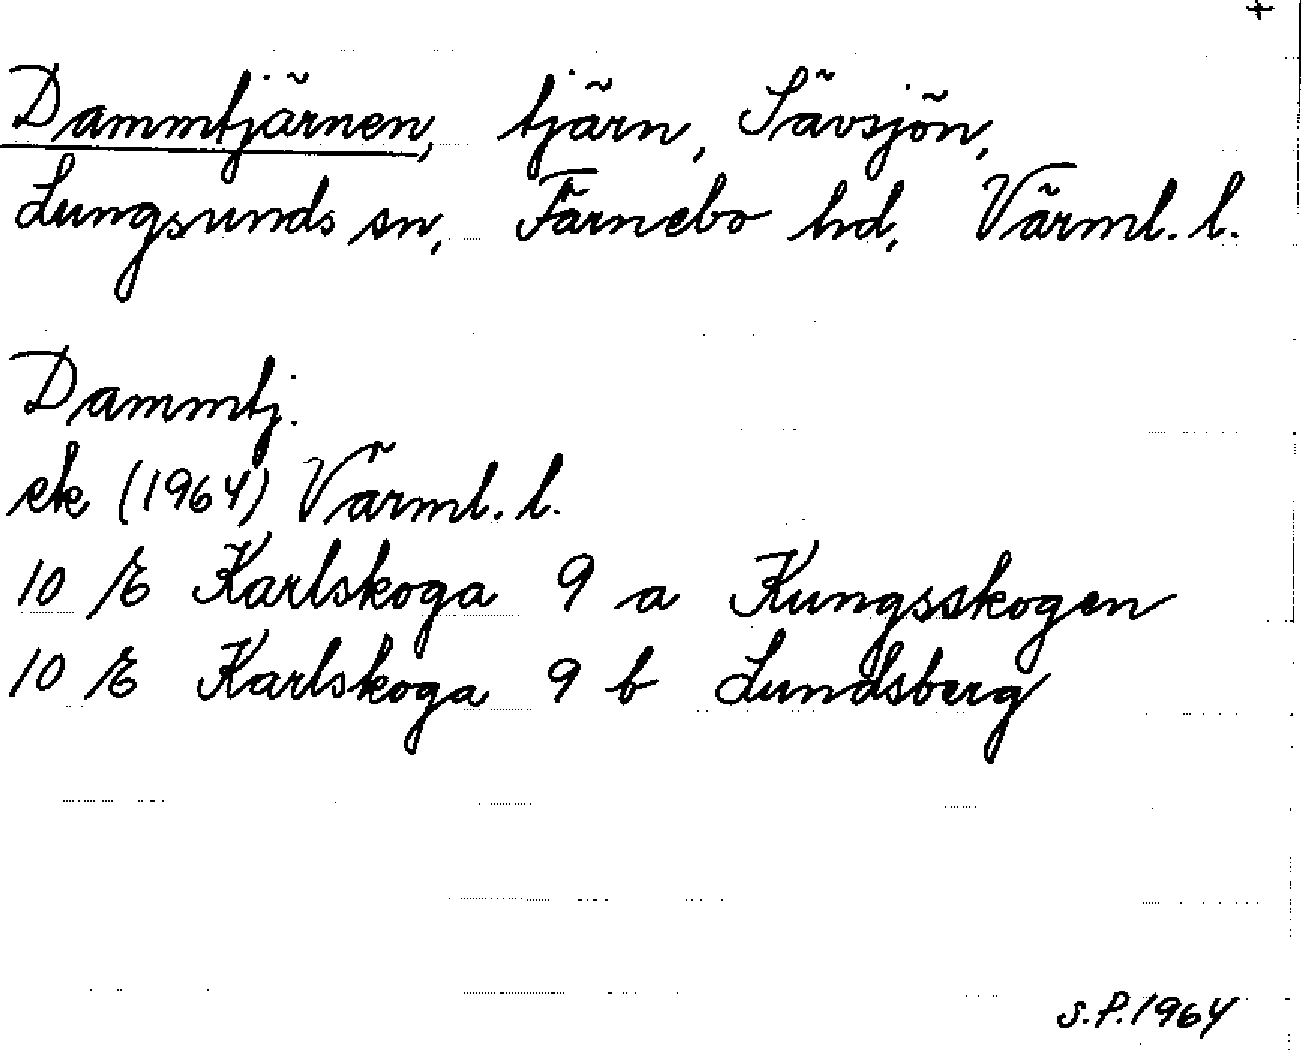 +
Dammtjärnen, tjärn, Sävsjön,
Lungsunds sn, Färnebo hd, Värml. l.
Dammtj.
ek (1964) Värml. l.
10 E Karlskoga 9 a Kungsskogen
10 E Karlskoga 9 b Lundsberg
S.P. 1964